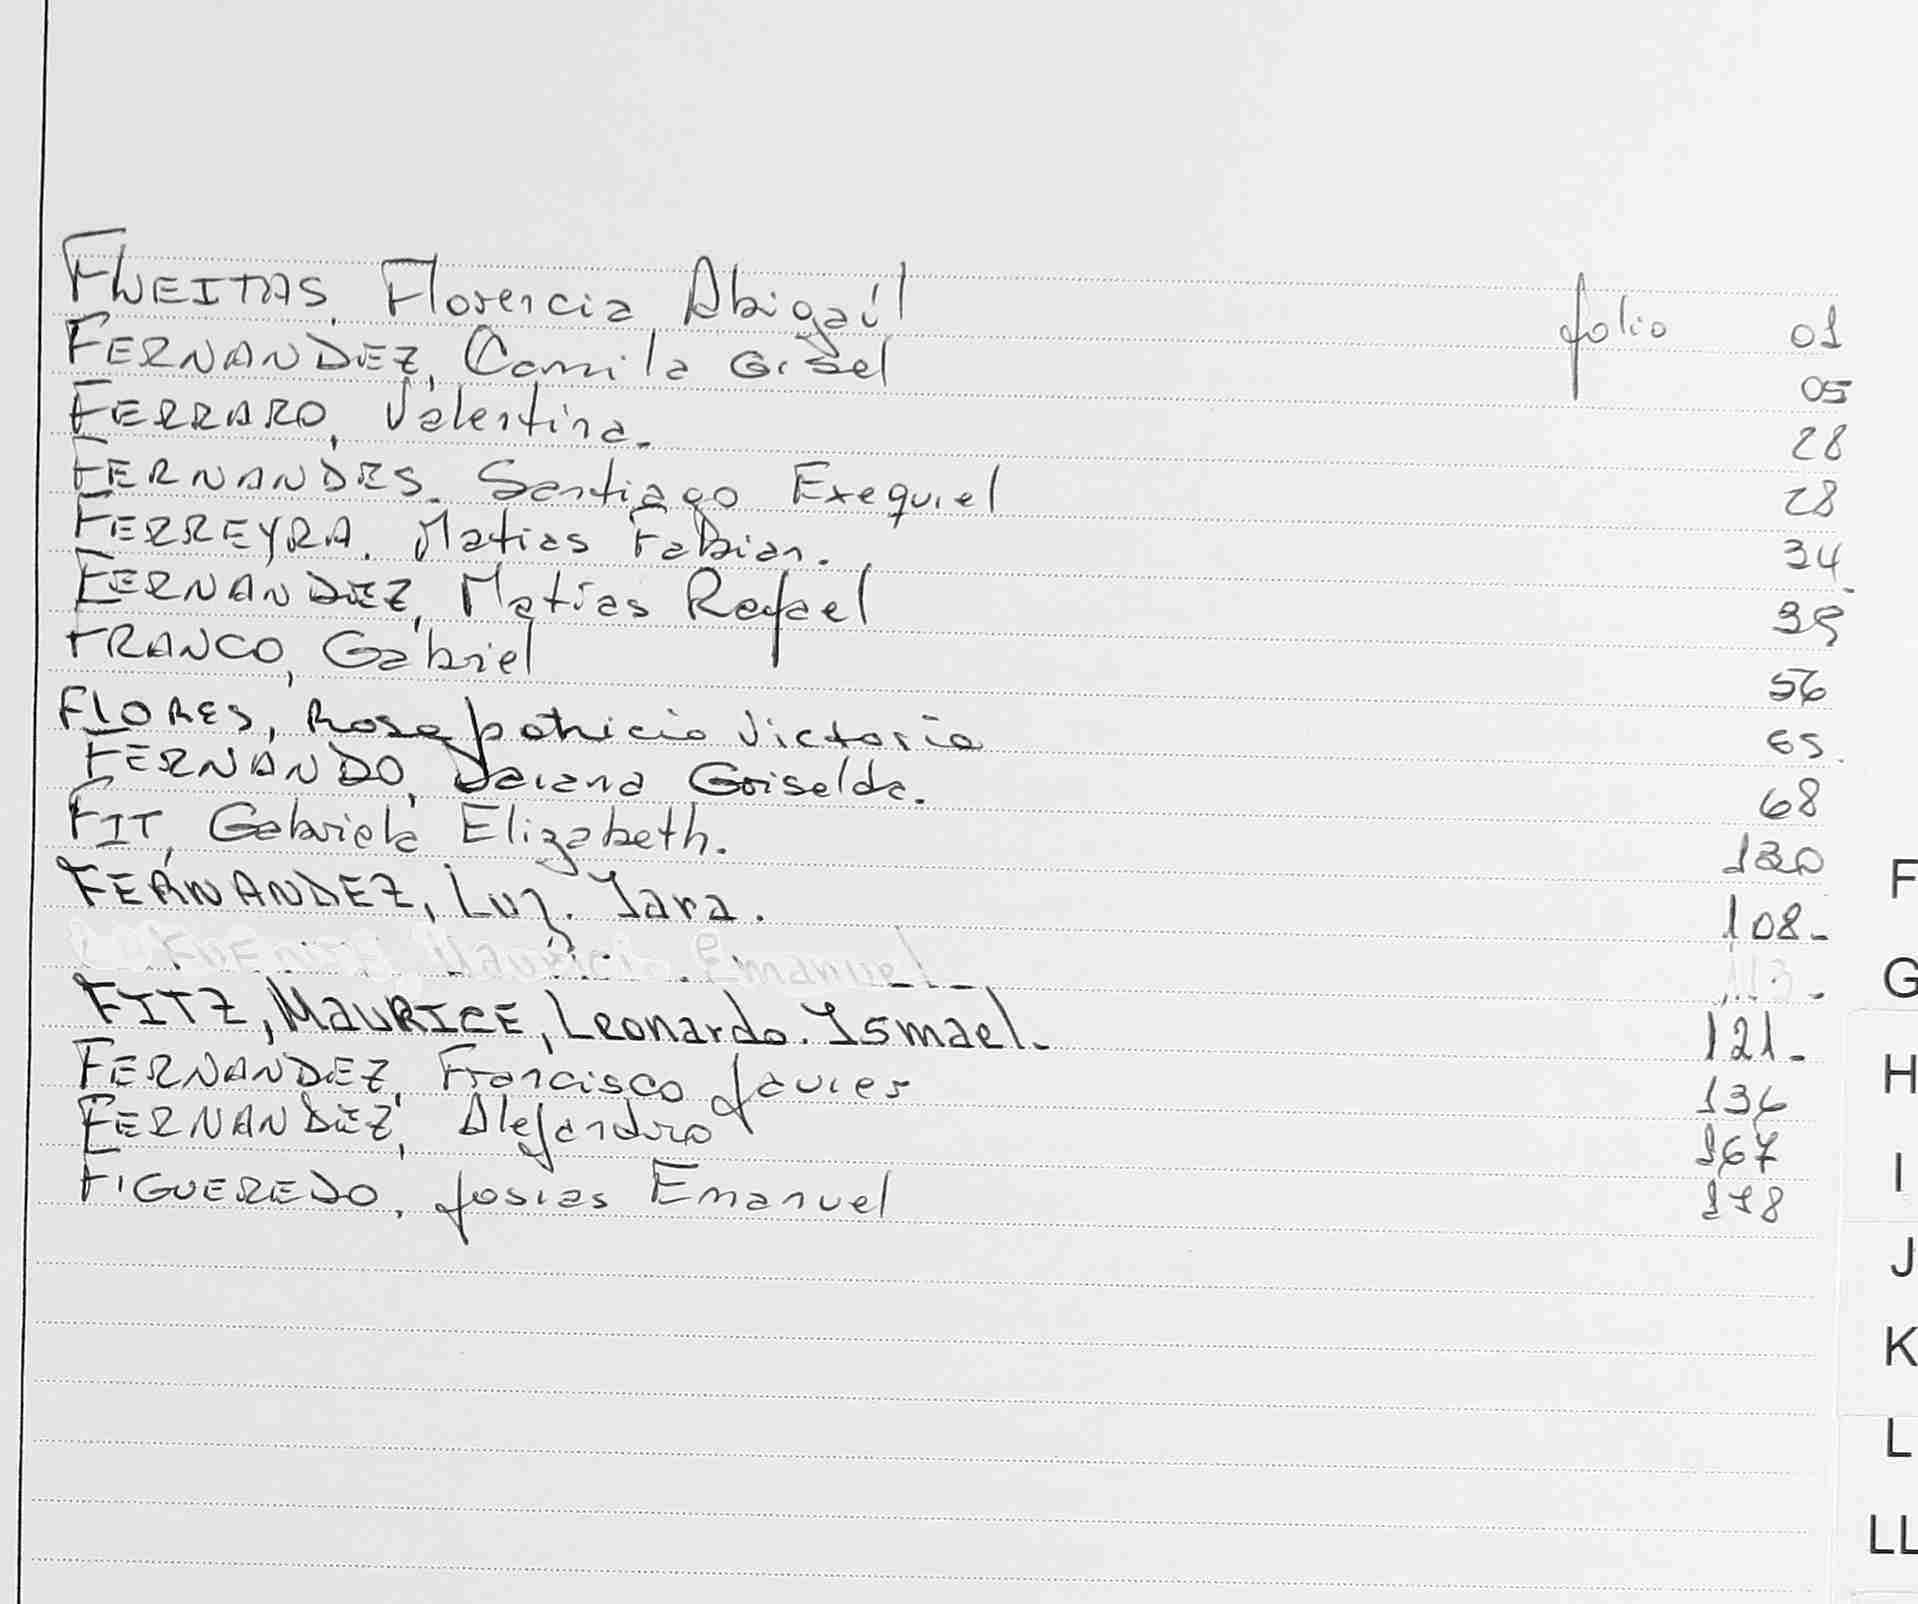 FREITAS, Florencia Abigaíl folio 01
FERNANDEZ, Camila Gisel 05
FERRARO, Valentina. 28
FERNANDES. Santiago Exequiel 28
FERREYRA. Matias Fabian. 34
FERNANDEZ, Matías Rafael 39
FRANCO, Gabriel 56
FLORES, Rosa patricia Victoria 65
FERNANDO, Daiana Griselda. 68
FIT, Gabriela Elizabeth. 120
FERNANDEZ, Luz. Iara. 108-
113.-
FITZ, MAURICE, Leonardo. Ismael.- 121.-
FERNANDEZ, Francisco Javier 136
FERNANDEZ, Alejandro 167
FIGUEREDO, Josias Emanuel 178
F
G
H
I
J
K
L
LL